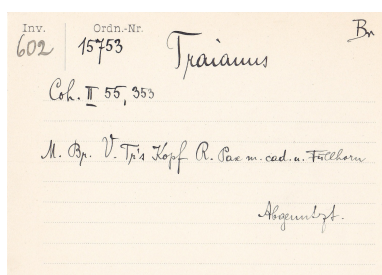 Inv. Ordn.-Nr. Br
602 15753 Traianus
Coh. II 55, 353
M. Br. V. Tr's Kopf R. Pax m. cad. u. Füllhorn
Abgenutzt.